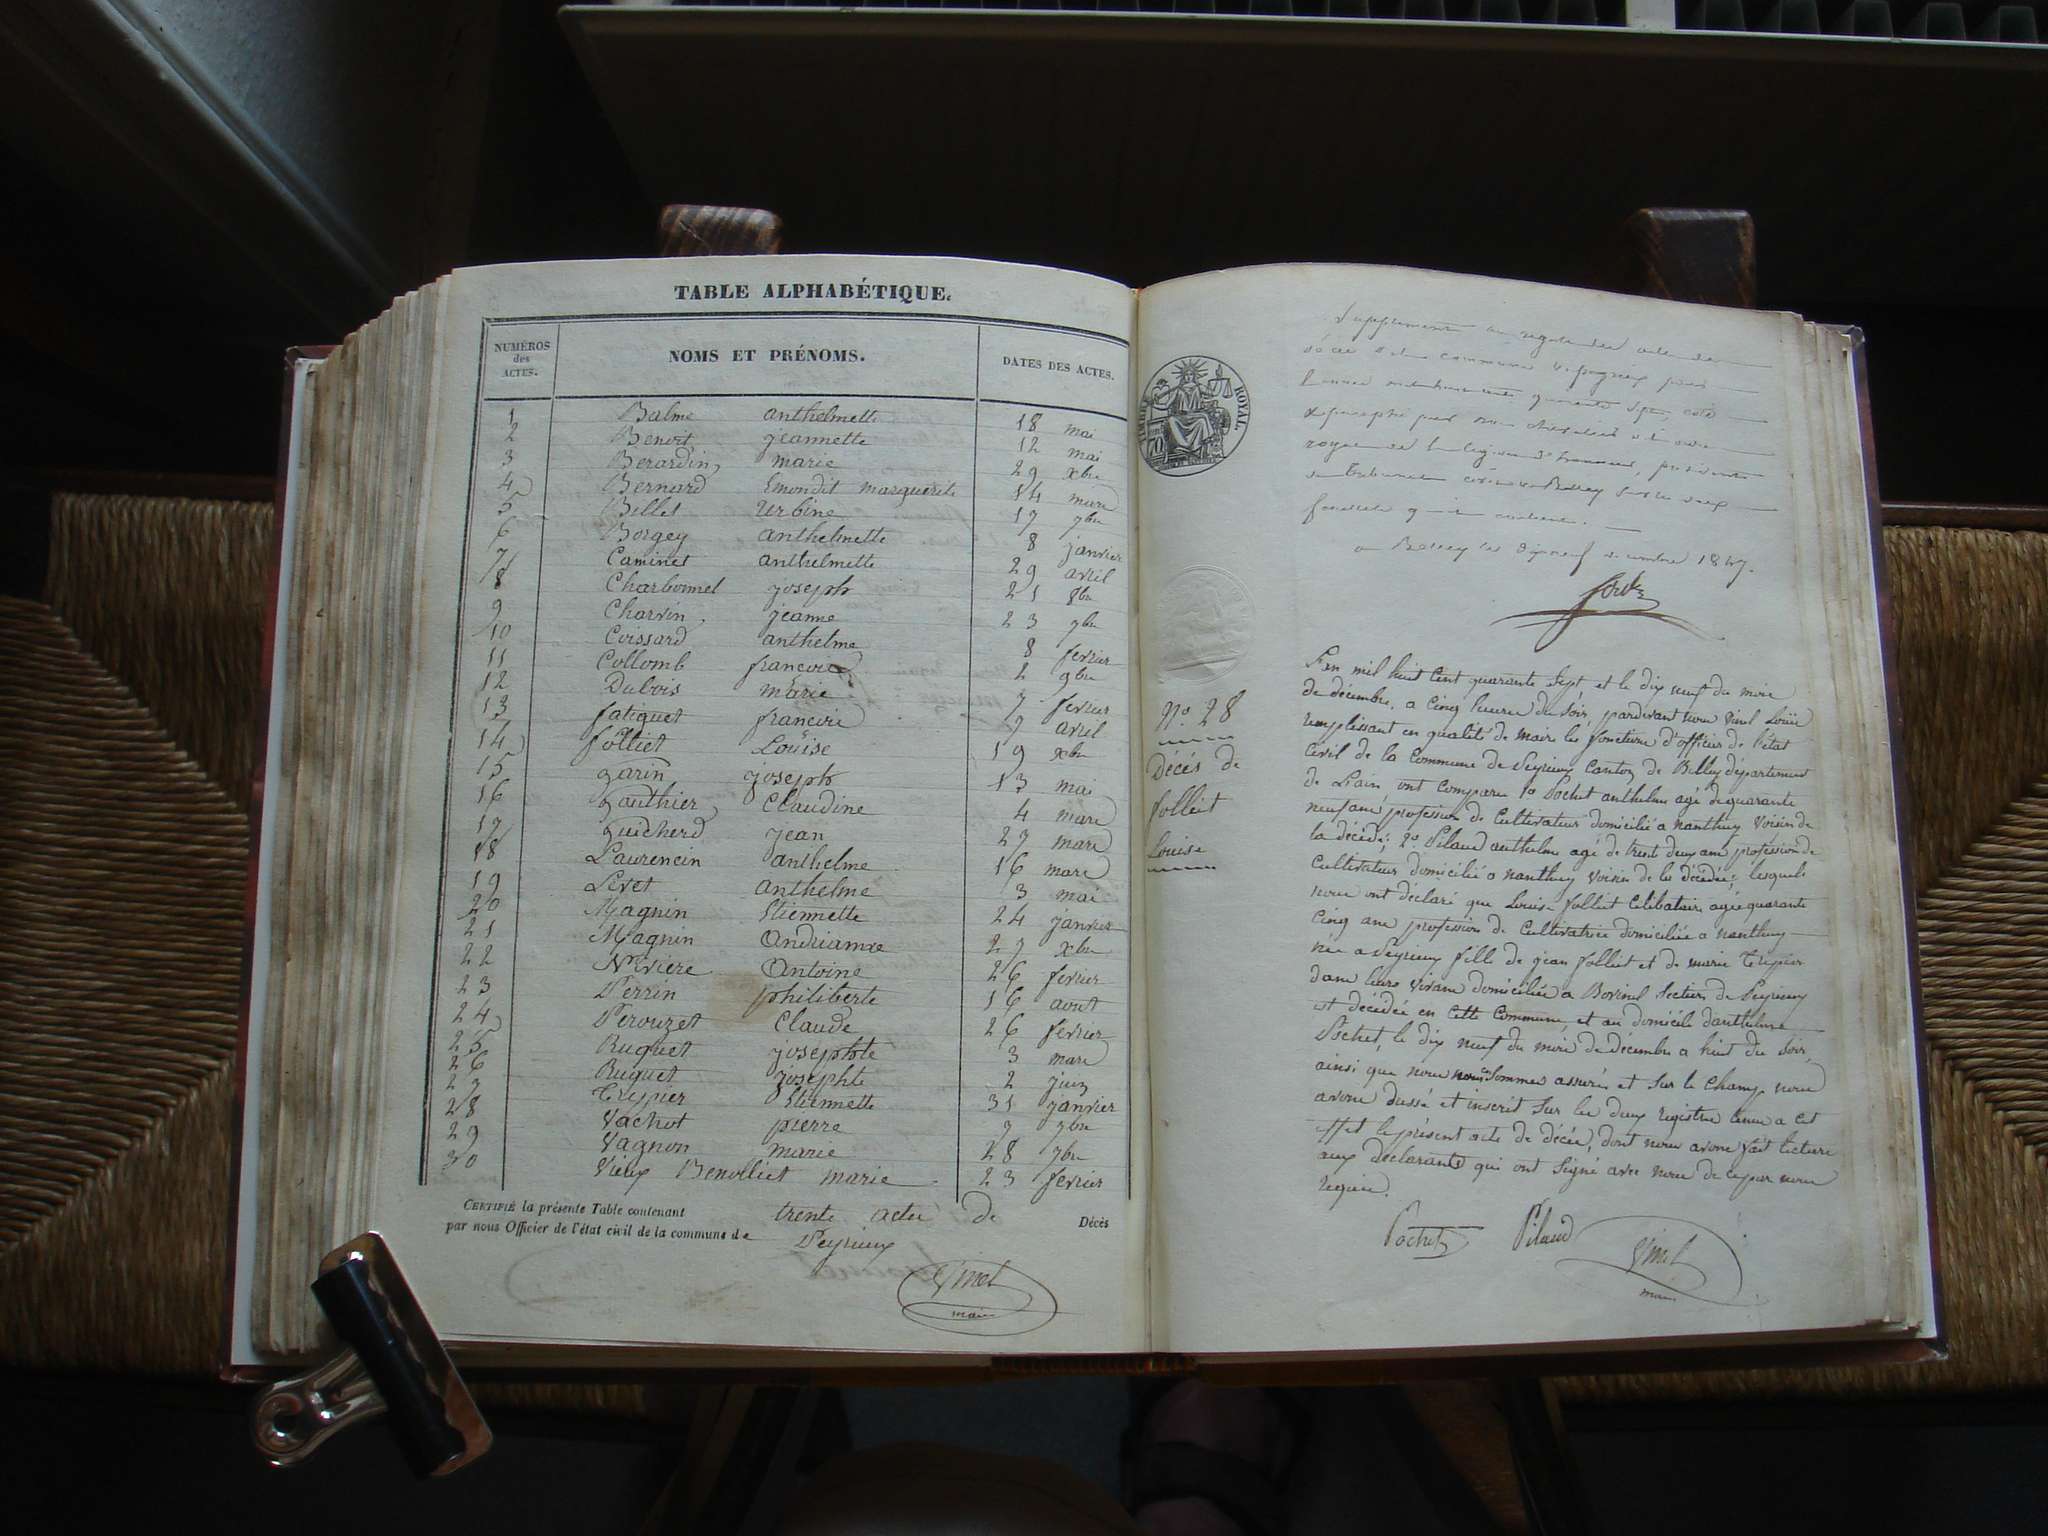 TABLE ALPHABÉTIQUE.
NUMÉROS des ACTES. NOMS ET PRÉNOMS. DATES DES ACTES.
1 Balme anthelmette 18 mai
2 Benoit jeannette 12 mai
3 Berardin, marie 29 xbre
4 Bernard Emondit marguerite 14 mars
5 Billet urbine 17 7bre
6 Borgey anthelmette 8 janvier
7 Caminet anthelmette 29 avril
8 Charbonnel joseph 21 8bre
9 Charvin, jeanne 23 9bre
10 Coissard anthelme 8 fevrier
11 Collomb francoise 2 9bre
12 Dubois marie 7 fevrier
13 fatiguet francoise 7 avril
14 folliet Louise 19 xbre
15 garin joseph 13 mai
16 gauthier, Claudine 4 mars
17 guicherd jean 27 mars
18 Laurencin anthelme 16 mars
19 Levet anthelme 3 mai
20 Magnin Etiennette 24 janvier
21 Magnin Andrianne 27 xbre
22 Niviere Antoine 26 fevrier
23 Perrin philiberte 16 aout
24 Perouzet Claude 26 fevrier
25 Ruguet josephte 3 mars
26 Ruguet josephte 2 juin
27 Trepier Etiennette 31 janvier
28 Vachot pierre 9 7bre
29 Vagnon marie 28 7bre
30 Vieux Benolliet marie 23 fevrier
CERTIFIÉ la présente Table contenant trente actes de Décès
par nous Officier de l'état civil de la commune de Peyrieux
Vinel
maire
TIMBRE ROYAL
70
Supplement au registre des actes de
décès de la commune de peyrieux pour
l'année mil huit cent quarante sept, coté
& paraphé par nous chevalier de l'ordre
royal de la légion d'honneur, président
du tribunal civil de Belley sur les deux
feuillets qu'il contient.
a Belley le dix neuf decembre 1847.
N°. 28
Décés de
folliet
Louise
L'an mil huit Cent quarante Sept et le dix neuf du mois
de décembre, a Cinq heures du Soir, pardevant nous Vinel Louis
remplissant en qualité de maire les fonctions d'officier de l'état
Civil de la Commune de Peyrieux Canton de Belley département
de L'ain, ont comparu 1° Pochet anthelme agé de quarante
neuf ans, profession de Cultivateur domicilié a nanthuy Voisin de
la décédé; 2° Pilaud anthelme agé de trente deux ans profession de
Cultivateur domicilié a nanthuy Voisin de la décédée; lesquels
nous ont déclaré que Louise folliet Célibataire agée quarante
Cinq ans profession de Cultivatrice domiciliée a nanthuy
née a Peyrieux fille de jean folliet et de marie Trepier
dans leurs vivans domiciliés a Bovinel Section de Peyrieux
est décédée en Cette Commune, et au domicile d'anthelme
Pochet, le dix neuf du mois de décembre a huit du Soir,
ainsi que nous nous en Sommes assurés et Sur le Champ nous
avons dressé et inscrit Sur les deux registres tenus a cet
effet le présent acte de décés, dont nous avons fait lecture
aux déclarants qui ont Signé avec nous de ce par nous
requis.
Pochet Pilaud Vinel
maire